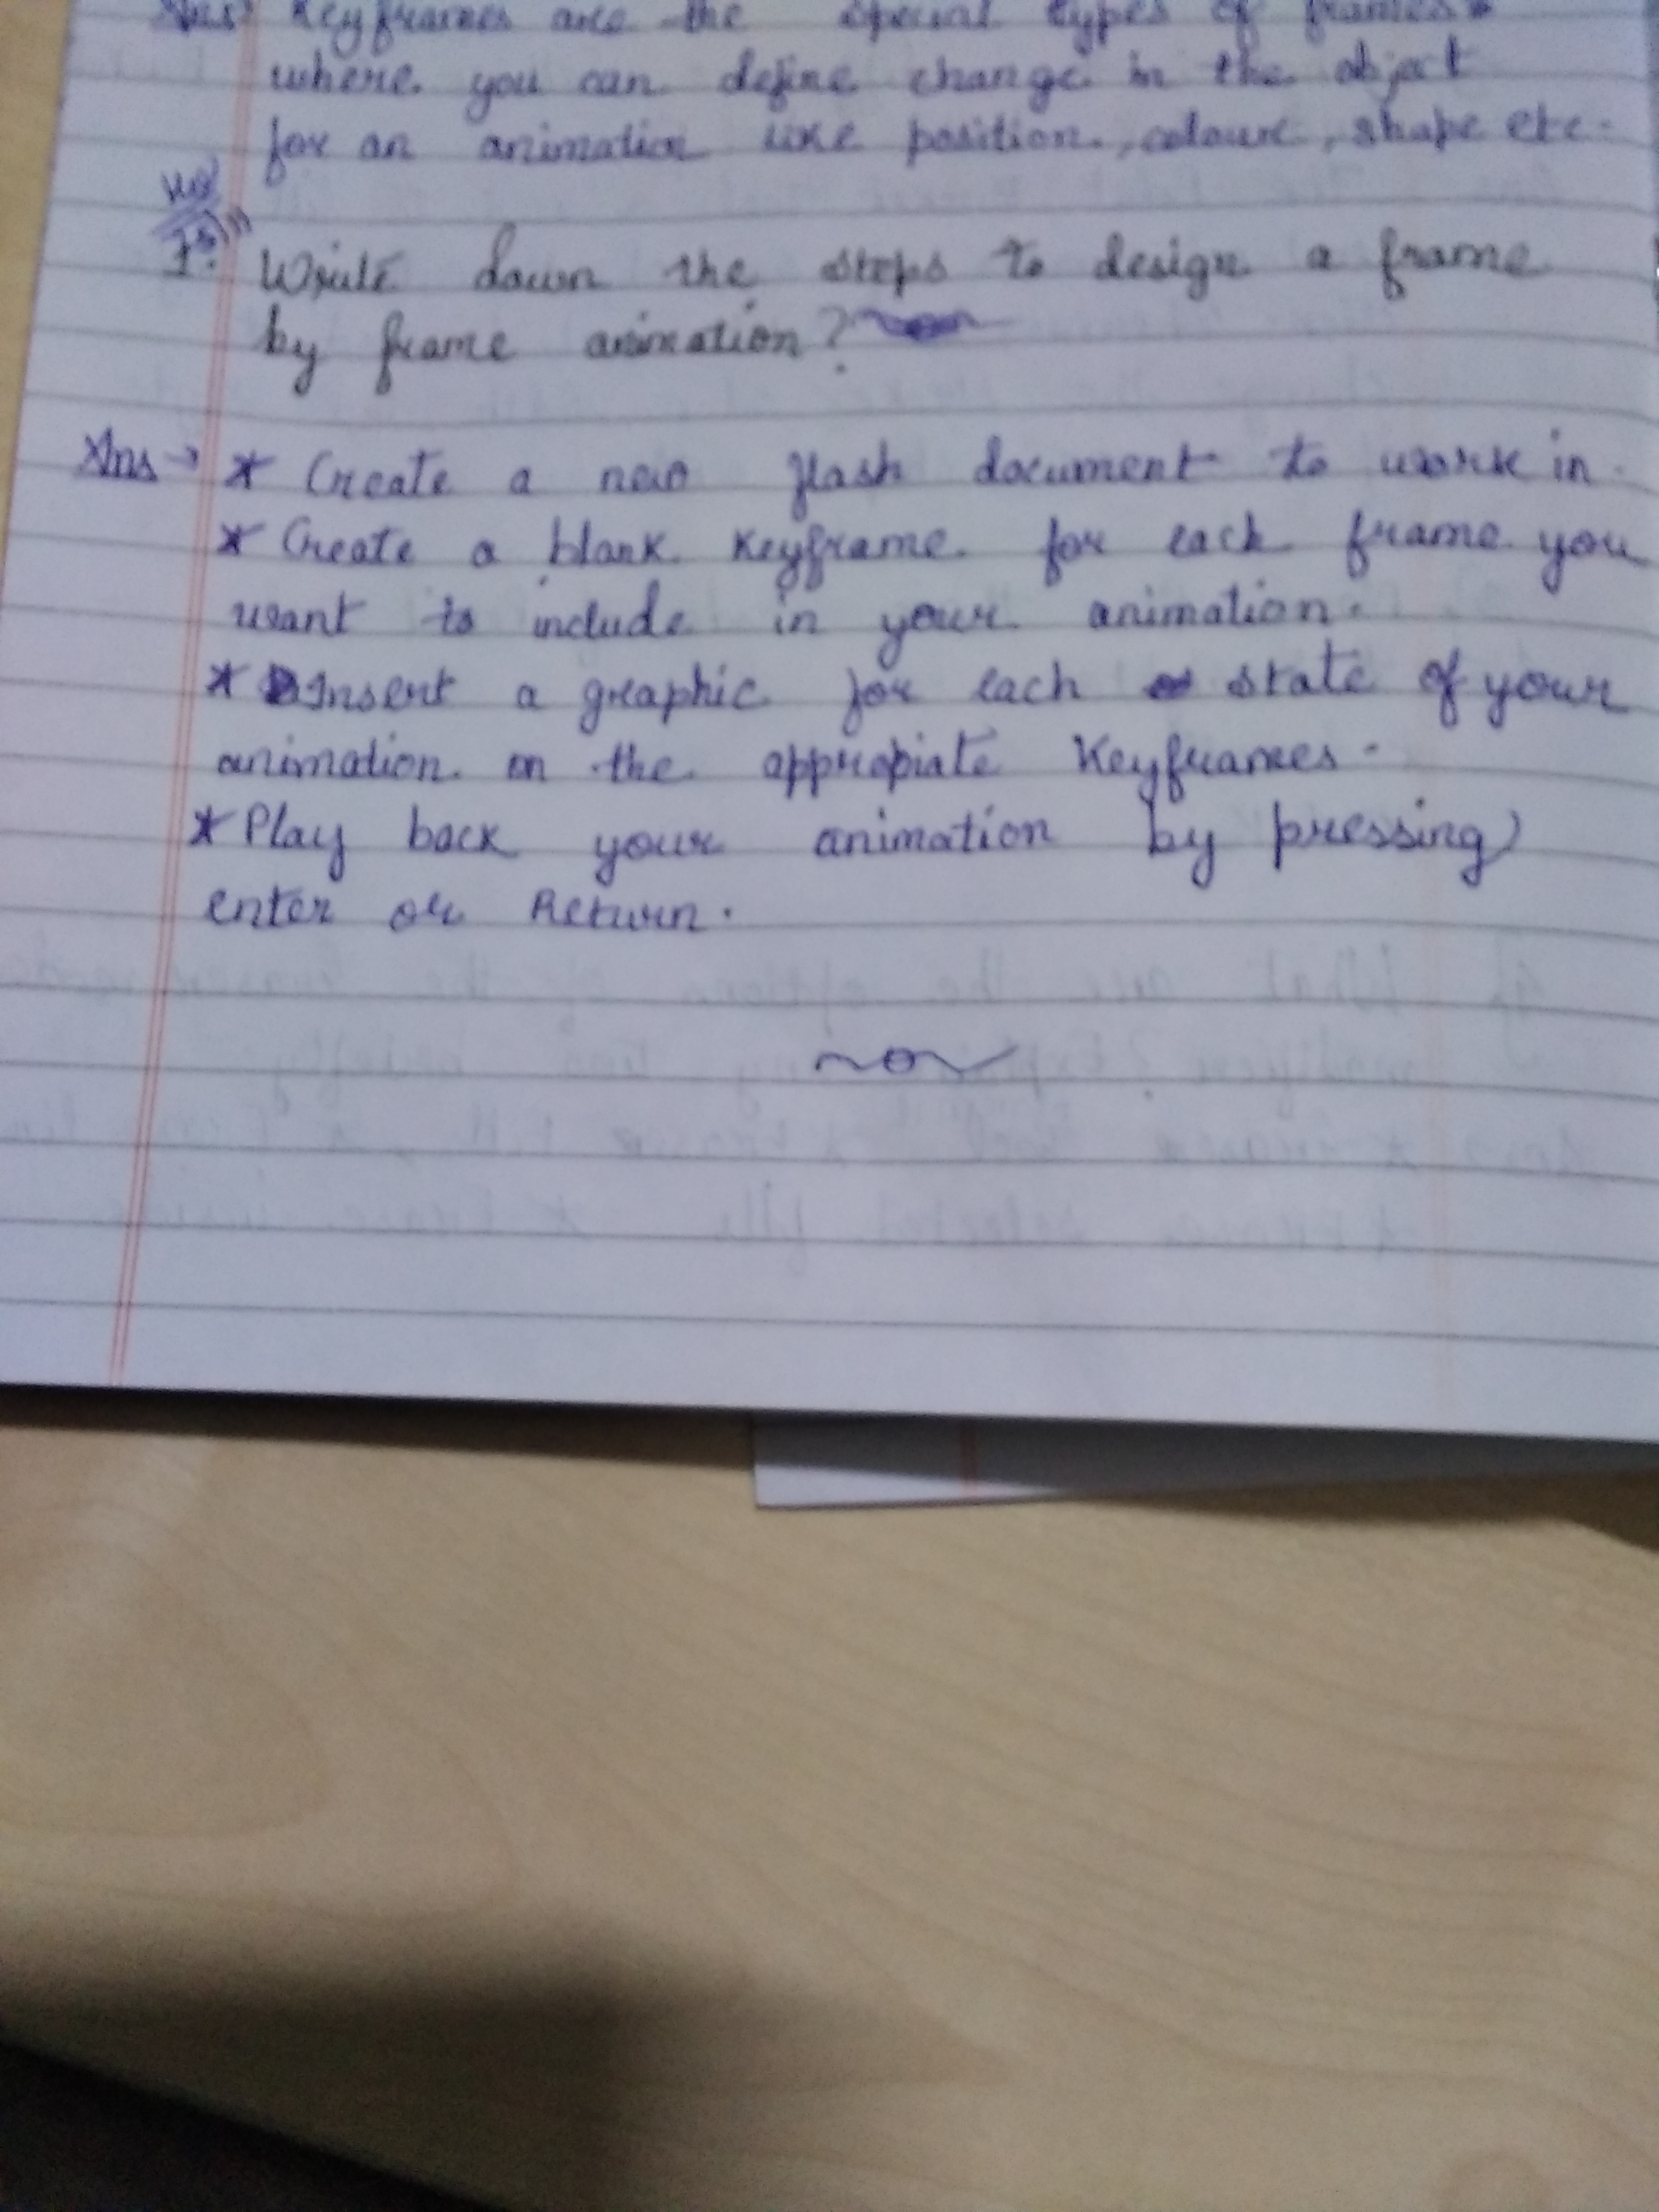 Ans Keyframes are the special types of frames
where you can define change in the object
for an animation like position, colour, shape etc.
Write down the steps to design a frame
by frame animation?
Ans → * Create a new flash document to work in.
* Create a blank Keyframe for each frame you
want to include in your animation.
* Insert a graphic for each state of your
animation on the appropiate Keyframes.
* Play back your animation by pressing
enter or Return.